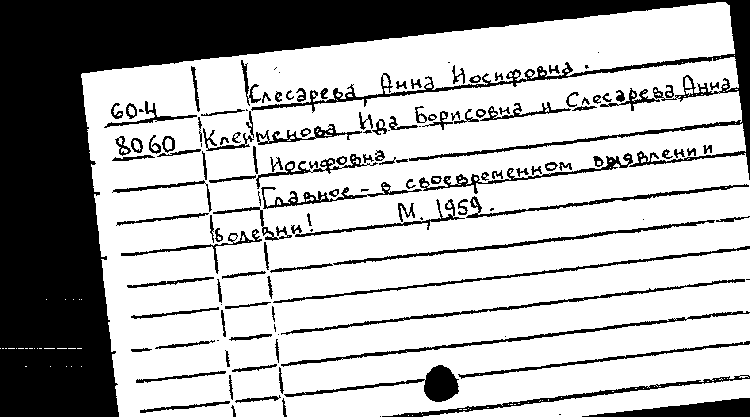 Слесарева, Анна Иосифовна.
60-4
8060 Клейменова, Ида Борисовна и Слесарева, Анна
Иосифовна.
Главное - в своевременном выявлении
болезни! М., 1959.